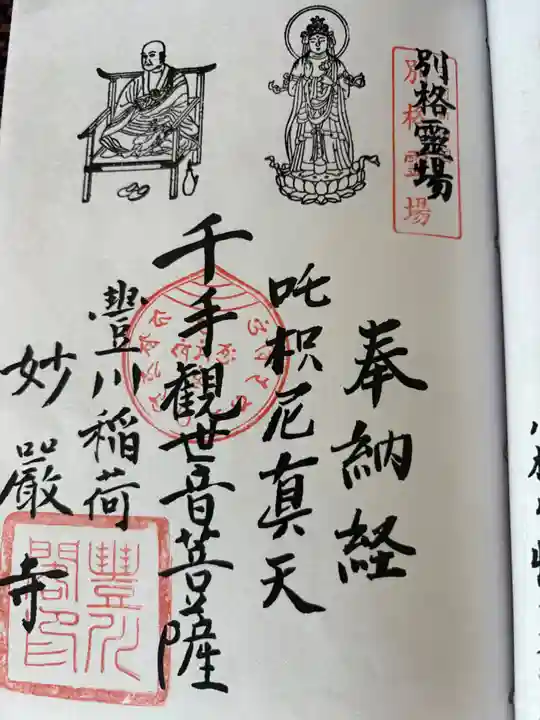 別格霊場
別格霊場
奉納経
吒枳尼真天
千手観世音菩薩
豊川稲荷
妙嚴寺
豊川
閣印